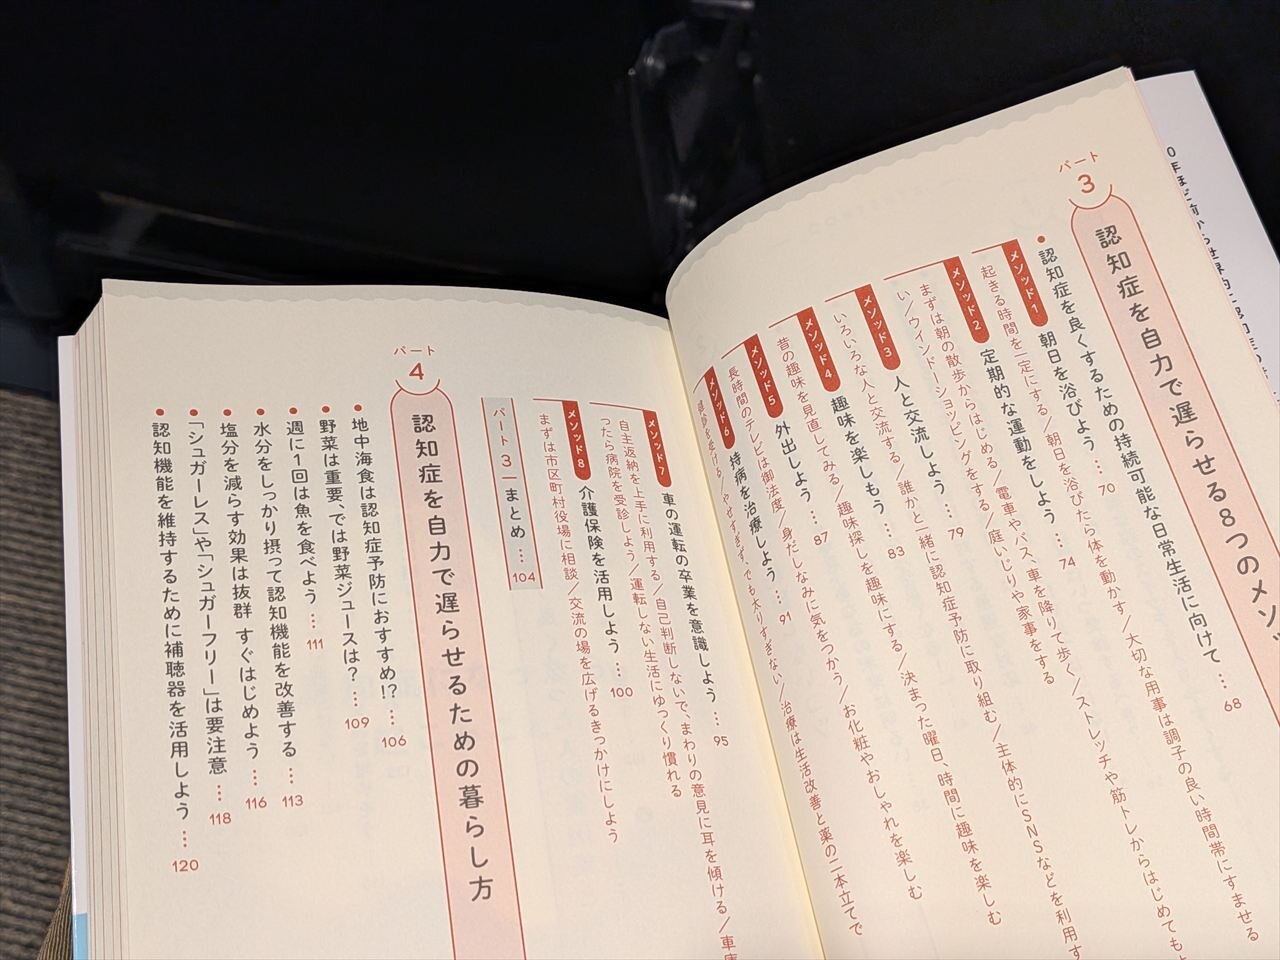 パート
3
認知症を自力で遅らせる8つのメソッ
●認知症を良くするための持続可能な日常生活に向けて … 68
メソッド1 朝日を浴びよう … 70
起きる時間を一定にする／朝日を浴びたら体を動かす／大切な用事は調子の良い時間帯にすませる
メソッド2 定期的な運動をしよう … 74
まずは朝の散歩からはじめる／電車やバス、車を降りて歩く／ストレッチや筋トレからはじめても
い／ウインドーショッピングをする／庭いじりや家事をする
メソッド3 人と交流しよう … 79
いろいろな人と交流する／誰かと一緒に認知症予防に取り組む／主体的にSNSなどを利用す
メソッド4 趣味を楽しもう … 83
昔の趣味を見直してみる／趣味探しを趣味にする／決まった曜日、時間に趣味を楽しむ
メソッド5 外出しよう … 87
長時間のテレビは御法度／身だしなみに気をつかう／お化粧やおしゃれを楽しむ
メソッド6 持病を治療しよう … 91
やせすぎず、でも太りすぎない／治療は生活改善と薬の二本立てで
メソッド7 車の運転の卒業を意識しよう … 95
自主返納を上手に利用する／自己判断しないで、まわりの意見に耳を傾ける／車庫
ったら病院を受診しよう／運転しない生活にゆっくり慣れる
メソッド8 介護保険を活用しよう … 100
まずは市区町村役場に相談／交流の場を広げるきっかけにしよう
パート3 まとめ … 104
パート
4
認知症を自力で遅らせるための暮らし方
●地中海食は認知症予防におすすめ!? … 106
●野菜は重要、では野菜ジュースは？ … 109
●週に1回は魚を食べよう … 111
●水分をしっかり摂って認知機能を改善する … 113
●塩分を減らす効果は抜群 すぐはじめよう … 116
●「シュガーレス」や「シュガーフリー」は要注意 … 118
●認知機能を維持するために補聴器を活用しよう … 120